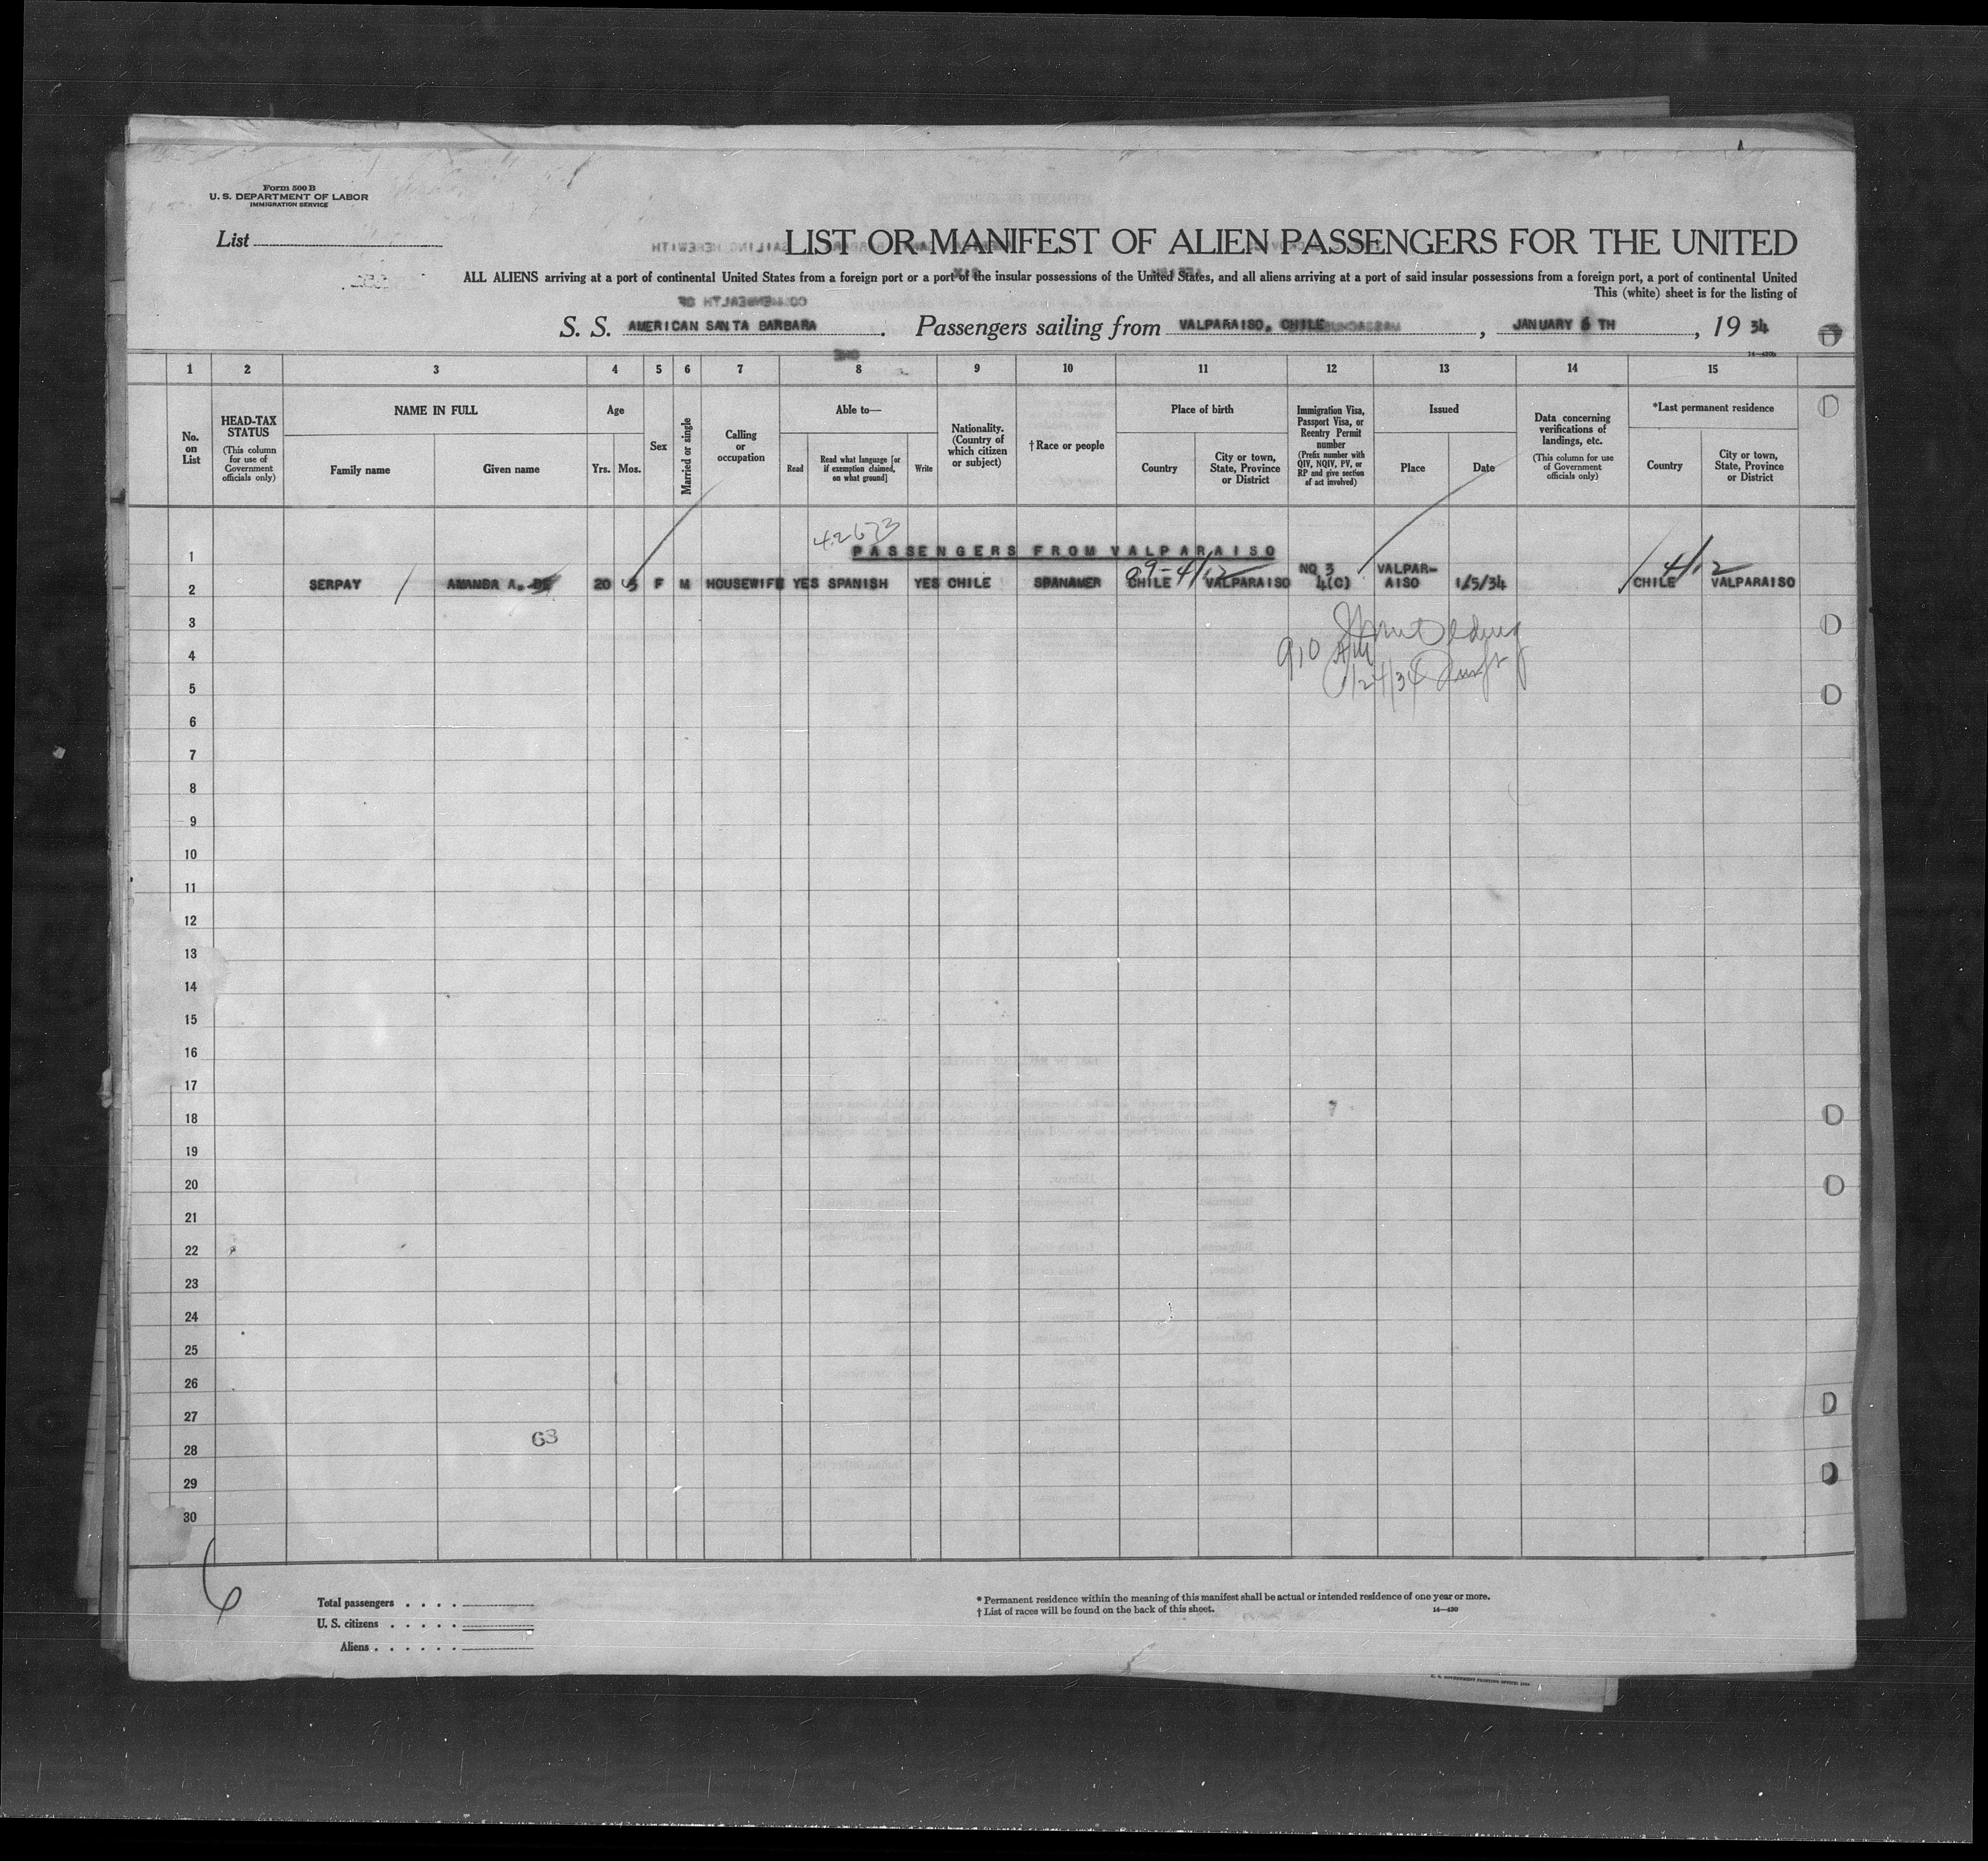 Form 500 B
U. S. DEPARTMENT OF LABOR
IMMIGRATION SERVICE
List
LIST OR MANIFEST OF ALIEN PASSENGERS FOR THE UNITED
ALL ALIENS arriving at a port of continental United States from a foreign port or a port of the insular possessions of the United States, and all aliens arriving at a port of said insular possessions from a foreign port, a port of continental United
This (white) sheet is for the listing of
S. S. AMERICAN SANTA BARBARA. Passengers sailing from VALPARAISO, CHILE, JANUARY 6 TH, 19 34
14—430b
1 2 3 4 5 6 7 8 9 10 11 12 13 14 15
No. on List
HEAD-TAX STATUS
(This column for use of Government officials only)
NAME IN FULL
Family name
Given name
Age
Yrs. Mos.
Sex
Married or single
Calling or occupation
Able to—
Read
Read what language [or if exemption claimed, on what ground]
Write
Nationality. (Country of which citizen or subject)
†Race or people
Place of birth
Country
City or town, State, Province or District
Immigration Visa, Passport Visa, or Reentry Permit number
(Prefix number with QIV, NQIV, PV, or RP and give section of act involved)
Issued
Place
Date
Data concerning verifications of landings, etc.
(This column for use of Government officials only)
*Last permanent residence
Country
City or town, State, Province or District
42673
1 PASSENGERS FROM VALPARAISO
09-4/12 4/12
2 SERPAY AMANDA A. DE 20 5 F M HOUSEWIFE YES SPANISH YES CHILE SPANAMER CHILE VALPARAISO NQ 3 4(C) VALPARAISO 1/5/34 CHILE VALPARAISO
3
4
910 AM
5
1/24/34
6
7
8
9
10
11
12
13
14
15
16
17
18
19
20
21
22
23
24
25
26
27
63
28
29
30
6
Total passengers
U. S. citizens
Aliens
* Permanent residence within the meaning of this manifest shall be actual or intended residence of one year or more.
† List of races will be found on the back of this sheet.
14—430